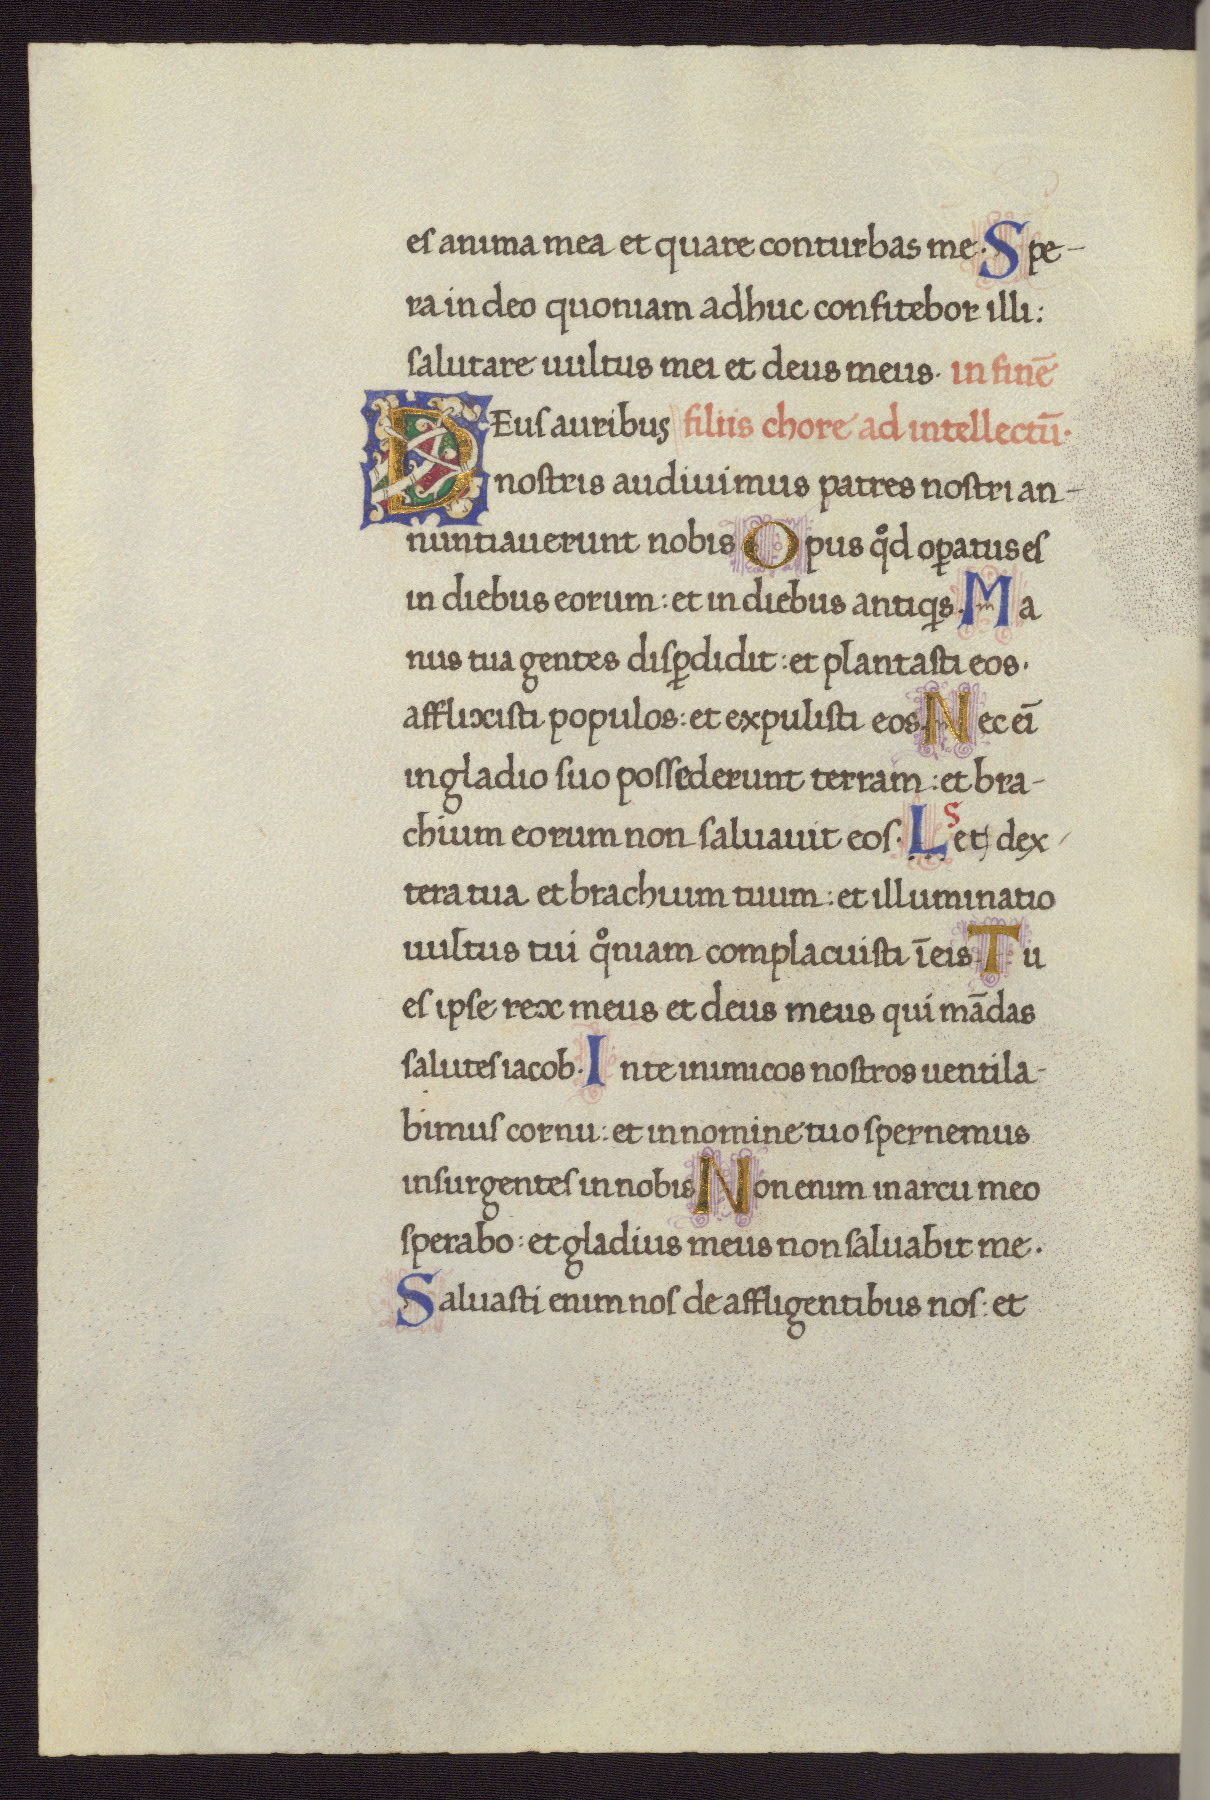 es anima mea et quare conturbas me. Spe-
ra in deo quoniam adhuc confitebor illi:
salutare uultus mei et deus meus. in finē
DEus auribus filiis chore ad intellectū.
nostris audiuimus patres nostri an-
nuntiauerunt nobis Opus qͦd oꝑatus es
in diebus eorum: et in diebus antiqͥs. Ma
nus tua gentes disꝑdidit: et plantasti eos.
afflixisti populos: et expulisti eos. Nec eī
in gladio suo possederunt terram: et bra-
chium eorum non saluauit eos. L s et dex
tera tua et brachium tuum: et illuminatio
uultus tui qͦniam complacuisti ī eis. Tu
es ipse rex meus et deus meus qui mādas
salutes iacob. In te inimicos nostros uentila-
bimus cornu: et in nomine tuo spernemus
insurgentes in nobis Non enim in arcu meo
sperabo: et gladius meus non saluabit me.
Saluasti enim nos de affligentibus nos: et